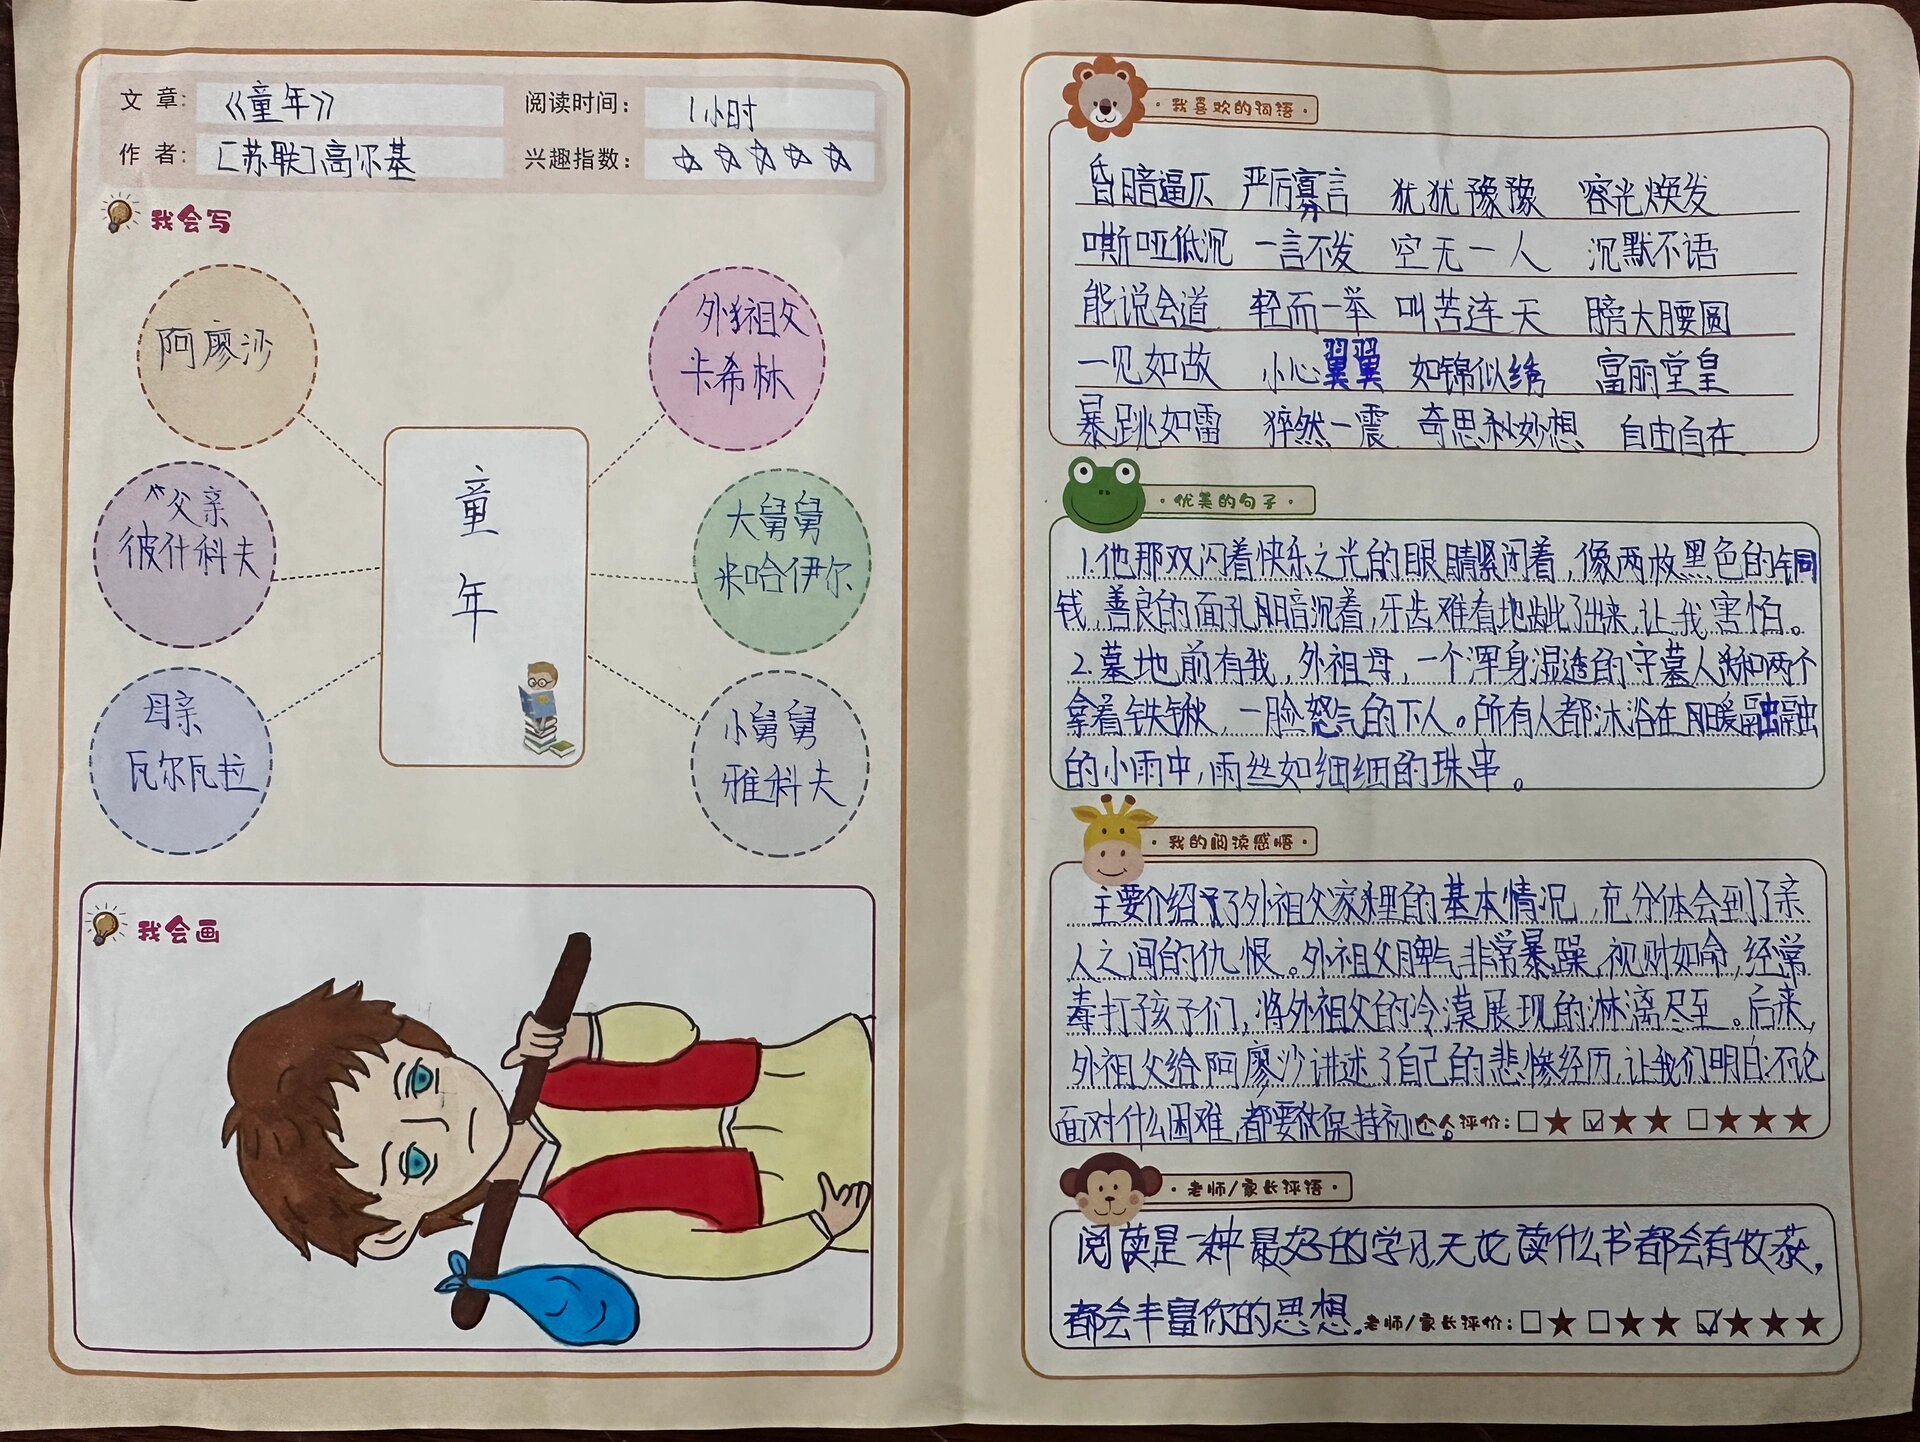 文 章： 《童年》 阅读时间： 1小时
作 者： [苏联]高尔基 兴趣指数： ☆☆☆☆☆
我会写
阿廖沙
外祖父
卡希林
父亲
彼什科夫
大舅舅
米哈伊尔
母亲
瓦尔瓦拉
小舅舅
雅科夫
童
年
我会画
·我喜欢的词语·
昏暗逼仄 严厉寡言 犹犹豫豫 容光焕发
嘶哑低沉 一言不发 空无一人 沉默不语
能说会道 轻而一举 叫苦连天 膀大腰圆
一见如故 小心翼翼 如锦似绣 富丽堂皇
暴跳如雷 猝然一震 奇思妙想 自由自在
·优美的句子·
1.他那双闪着快乐之光的眼睛紧闭着，像两枚黑色的铜
钱，善良的面孔阴暗沉着，牙齿难看地龇了出来，让我害怕。
2.墓地前有我，外祖母，一个浑身湿透的守墓人和两个
拿着铁锹，一脸怒气的下人。所有人都沐浴在暖融融
的小雨中，雨丝如细细的珠串。
·我的阅读感悟·
主要介绍了外祖父家里的基本情况，充分体会到了亲
人之间的仇恨。外祖父脾气非常暴躁，视财如命，经常
毒打孩子们，将外祖父的冷漠展现的淋漓尽至。后来，
外祖父给阿廖沙讲述了自己的悲惨经历，让我们明白：不论
面对什么困难，都要做保持初心。 个人评价：□★ ☑★★ □★★★
·老师/家长评语·
阅读是一种最好的学习，无论读什么书都会有收获，
都会丰富你的思想。 老师/家长评价：□★ □★★ ☑★★★